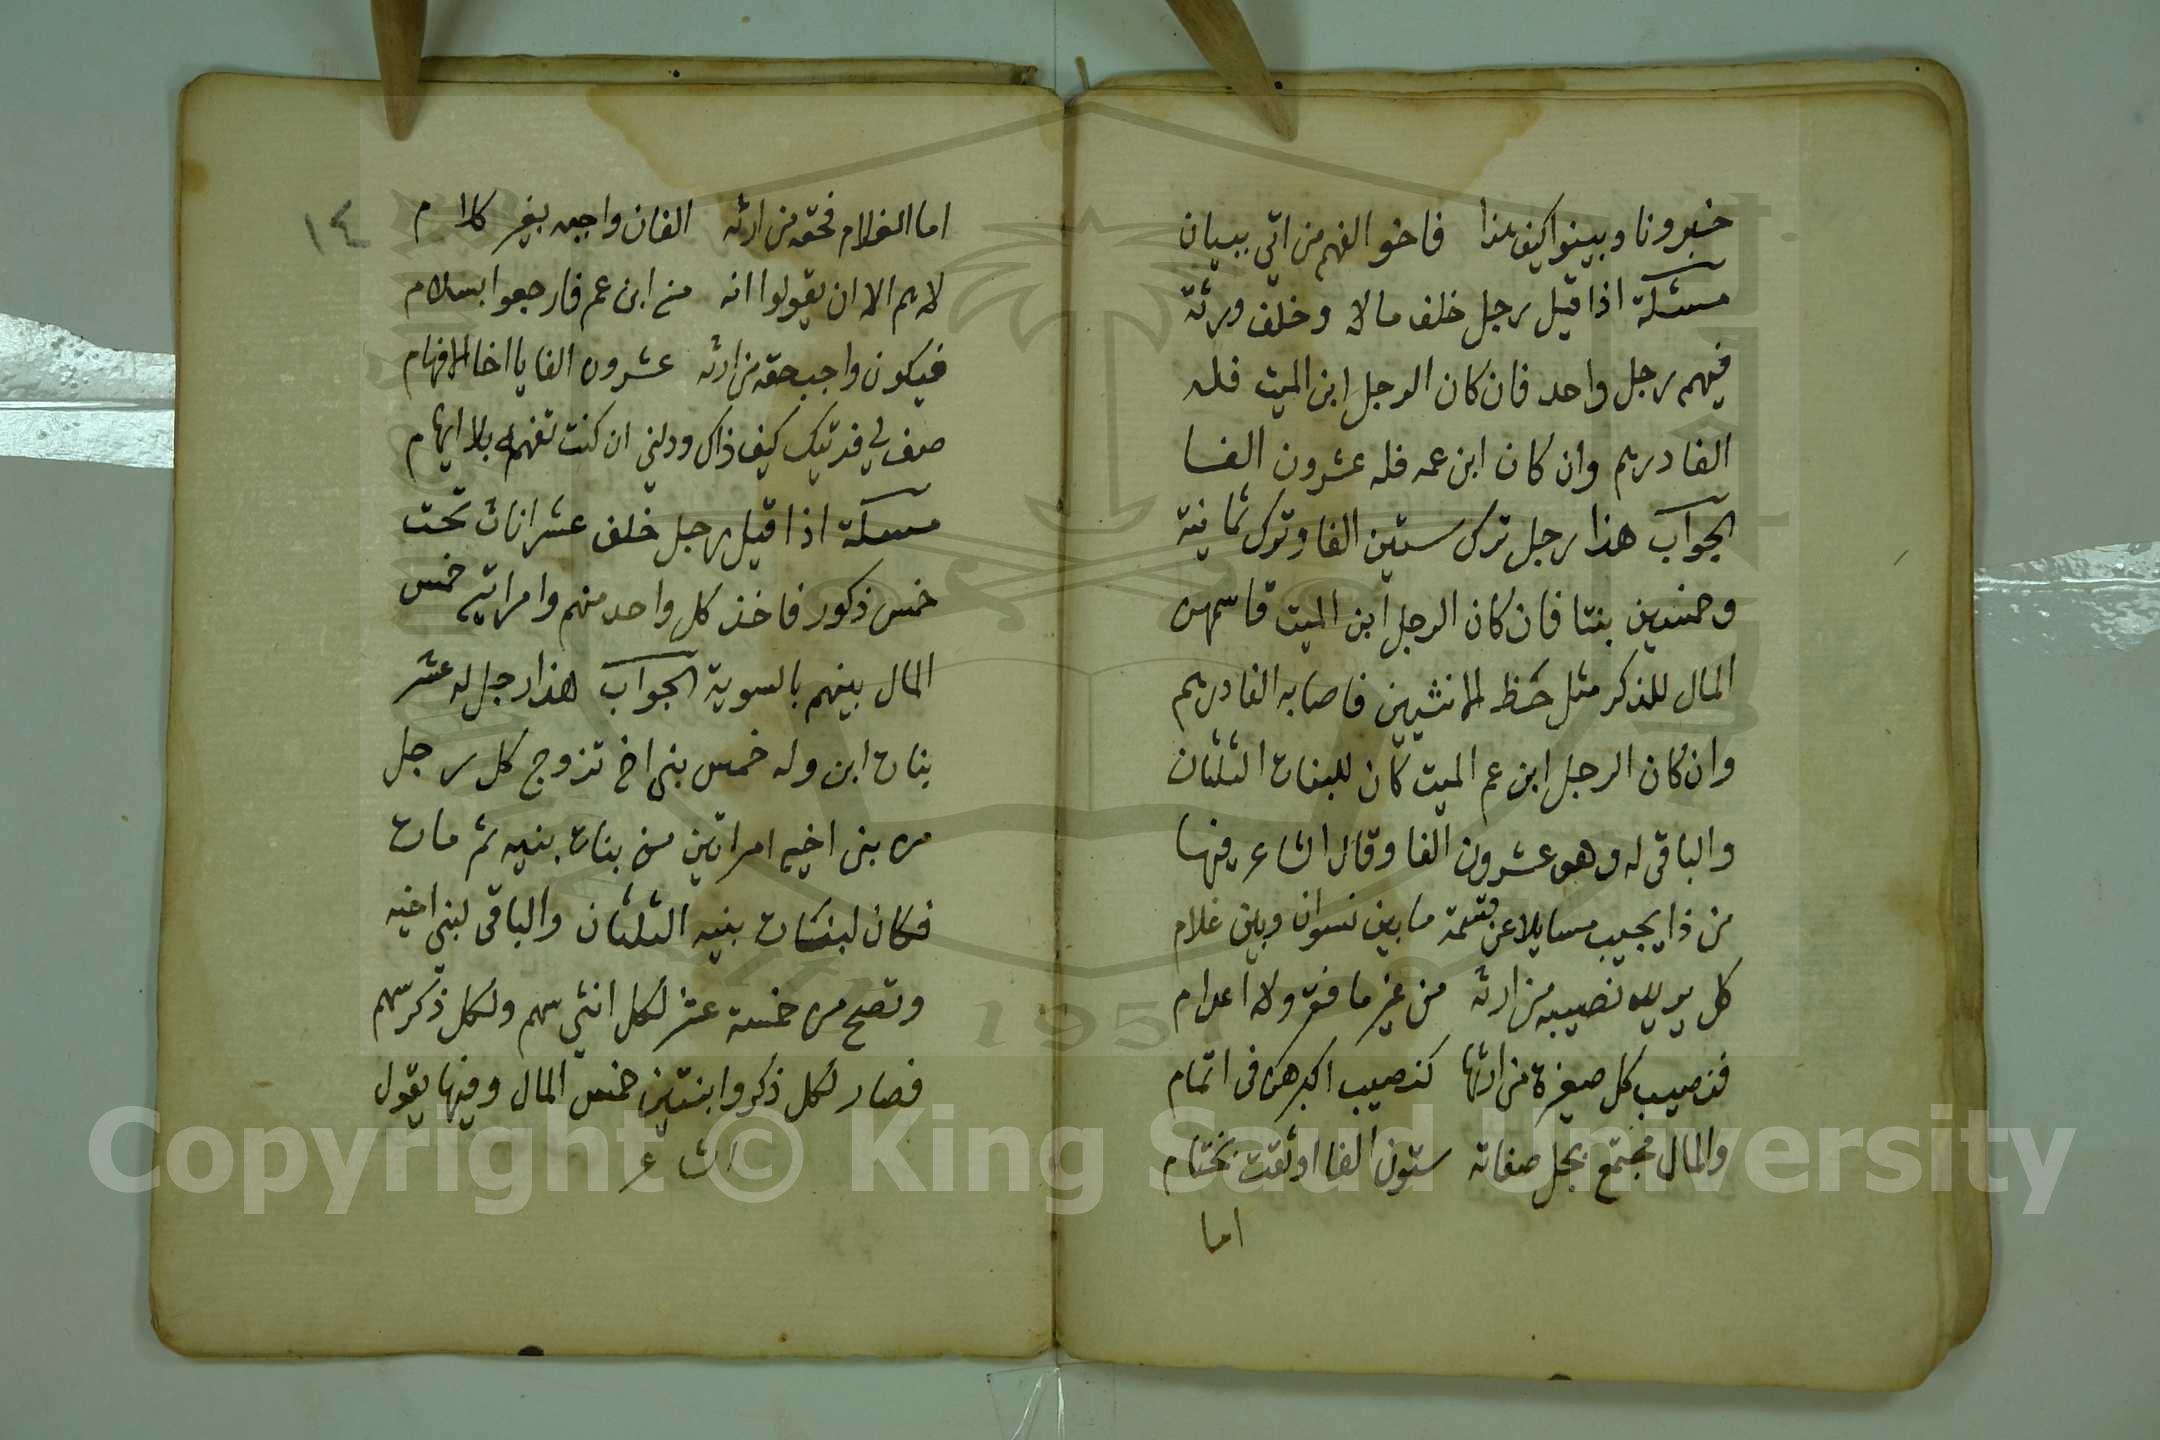 خبرونا وبينوا كيف هذا فاخو الفهم من اتي ببيان
مسئلة اذا قيل رجل خلف مالا وخلف ورثة
فيهم رجل واحد فان كان الرجل ابن الميت فله
الفا درهم وان كان ابن عمه فله عشرون الفا
الجواب هذا رجل ترك ستين الفا وترك ثمانية
وخمسين بنتا فان كان الرجل ابن الميت قاسمهن
المال للذكر مثل حظ الانثيين فاصابه الفا درهم
وان كان الرجل ابن عم الميت كان للبنات الثلثان
والباقى له وهو عشرون الفا وقال الشاعر فيها
من ذا يجيب مسايلا عن قسمة ما بين نسوان وبين غلام
كل يريد نصيبه من ارثه من غير ما فقر ولا اعدام
فنصيب كل صغيرة من ارثها كنصيب اكبرهن فى اتمام
والمال مجتمع بجل صفاته ستون الفا اوثقت بختام
اما
١٤
اما الغلام فحقه من ارثه الفان واجبه بغير كلام
لاهم الا ان يقولوا انه من ابن عم فارجعوا بسلام
فيكون واجب حقه من ارثه عشرون الفا يا اخا الافهام
صف لي فديتك كيف ذاك ودلني ان كنت تفهم بلا ايهام
مسئلة اذا قيل رجل خلف عشر اناث تحت
خمس ذكور فاخذ كل واحد منهم وامراتيه خمس
المال بينهم بالسوية الجواب هذا رجل له عشر
بنات ابن وله خمس بني اخ تزوج كل رجل
من بنى اخيه امراتين من بنات بنيه ثم مات
فكان لبنات بنيه الثلثان والباقى لبني اخيه
وتصح من خمسة عشر لكل انثي سهم ولكل ذكر سهم
فصار لكل ذكر وابنتين خمس المال وفيها يقول
الشاعر
Copyright © King Saud University
1957